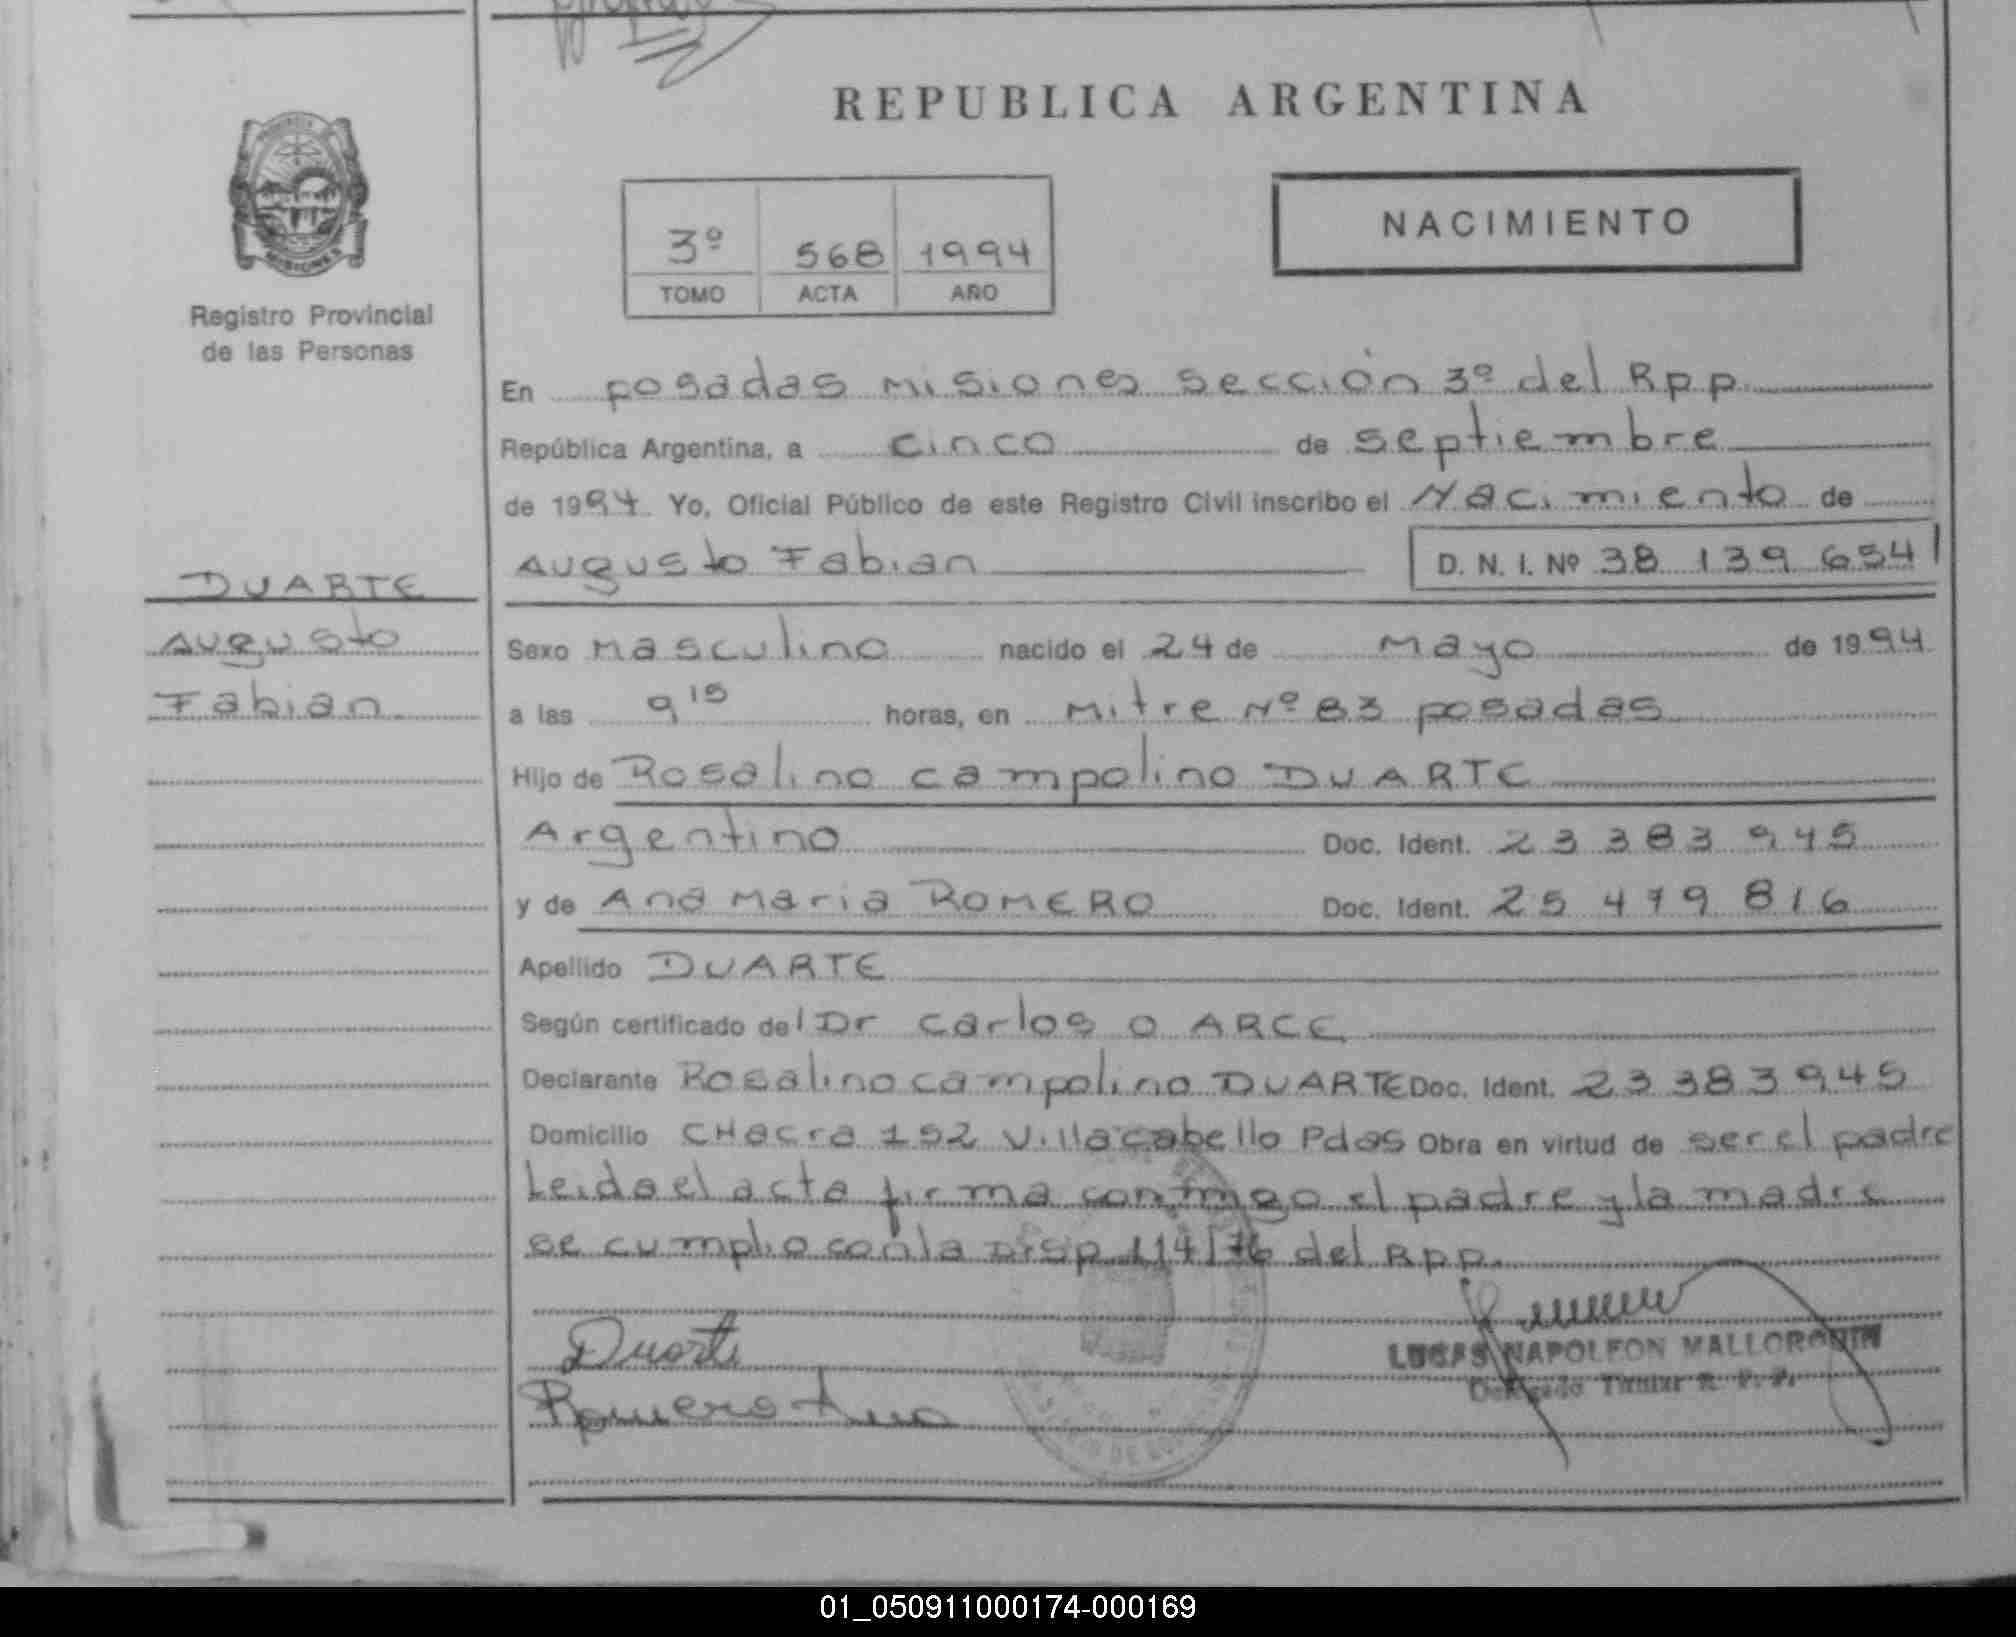 REPUBLICA ARGENTINA
PROVINCIA
MISIONES
Registro Provincial
de las Personas
3º 568 1994
TOMO ACTA AÑO
NACIMIENTO
En posadas Misiones sección 3º del Rpp
República Argentina, a cinco de septiembre
de 1994 Yo, Oficial Público de este Registro Civil inscribo el Nacimiento de
Augusto Fabian D. N. I. Nº 38 139 654
DUARTE
Augusto
Fabian
Sexo Masculino nacido el 24 de Mayo de 1994
a las 9 15 horas, en Mitre Nº 83 posadas
Hijo de Rosalino campolino DUARTE
Argentino Doc. Ident. 23 383 945
y de Ana Maria ROMERO Doc. Ident. 25 479 816
Apellido DUARTE
Según certificado del Dr carlos o ARCE
Declarante Rosalino campolino DUARTE Doc. Ident. 23 383 945
Domicilio CHacra 152 Villa cabello Pdas Obra en virtud de ser el padre
Leida el acta firma conmigo el padre y la madre
se cumplio con la Disp 114/76 del Rpp.
Duarte
Romero Ana
LUCAS NAPOLEON MALLORQUIN
Delegado Titular R. P. P.
01_050911000174-000169